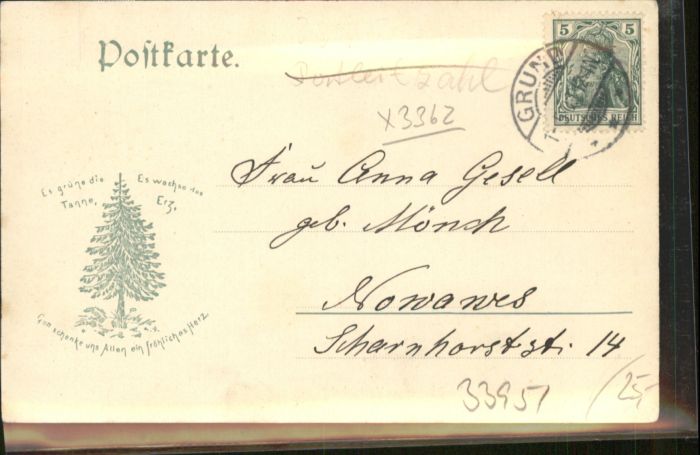 Postkarte.
Postleitzahl
x3362
5 5
DEUTSCHES REICH
GRUND
Frau Anna Gesell
geb. Mönch
Nowawes
Scharnhorststr. 14
Es grüne die Tanne,
Es wachse das Erz,
Gott schenke uns Allen ein fröhliches Herz
33951
(25,-